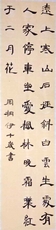 遠上寒山石徑斜白雲生處有
人家停車坐愛楓林晚霜葉紅
於二月花
周桐伊十歲書